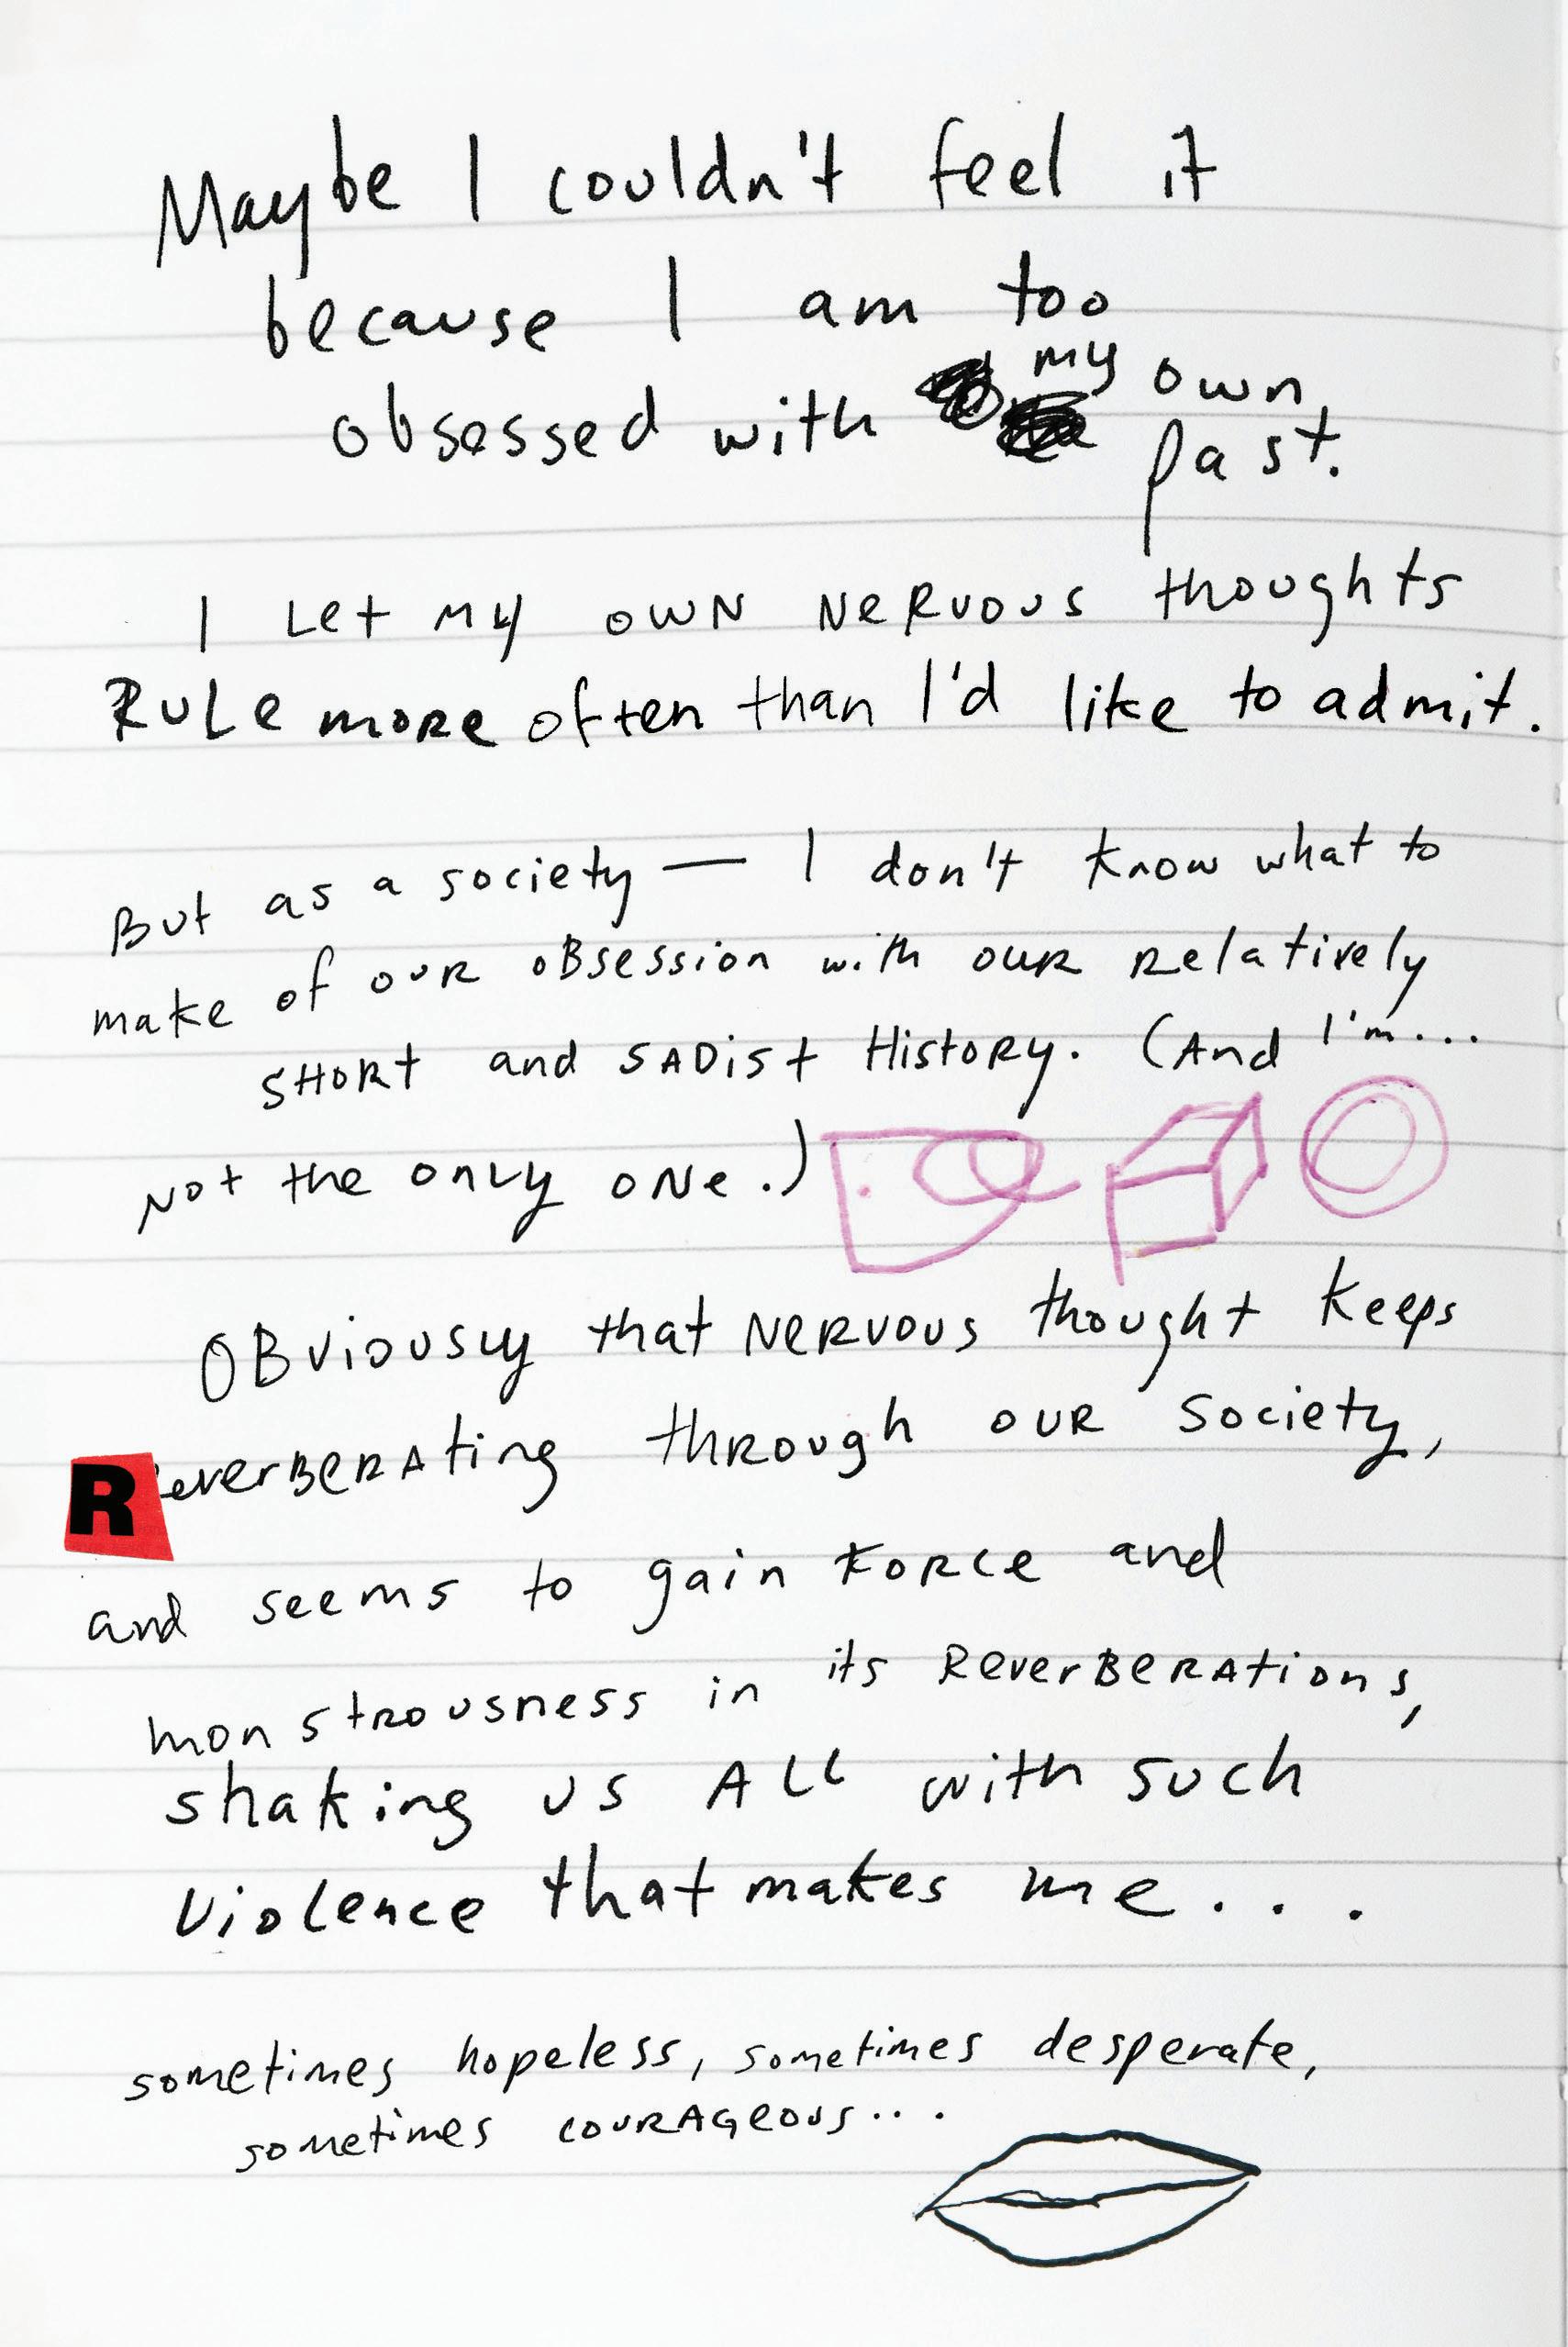 Maybe I couldn't feel it
because I am too
obsessed with my own
past.
I Let MY OWN NeRVOUS thoughts
RULe moRe often than I'd like to admit.
But as a society — I don't know what to
make of ouR oBsession with ouR Relatively
SHORt and SADist HistoRy. (And I'm....
Not the only oNe.)
OBviously that NeRVOUS thought keeps
ReverBeRAting thRough ouR society,
and seems to gain FoRce and
monstRousness in its ReverBeRAtions,
shaking us ALL with such
Violence that makes me...
sometimes hopeless, sometimes desperate,
sometimes couRAGeous...